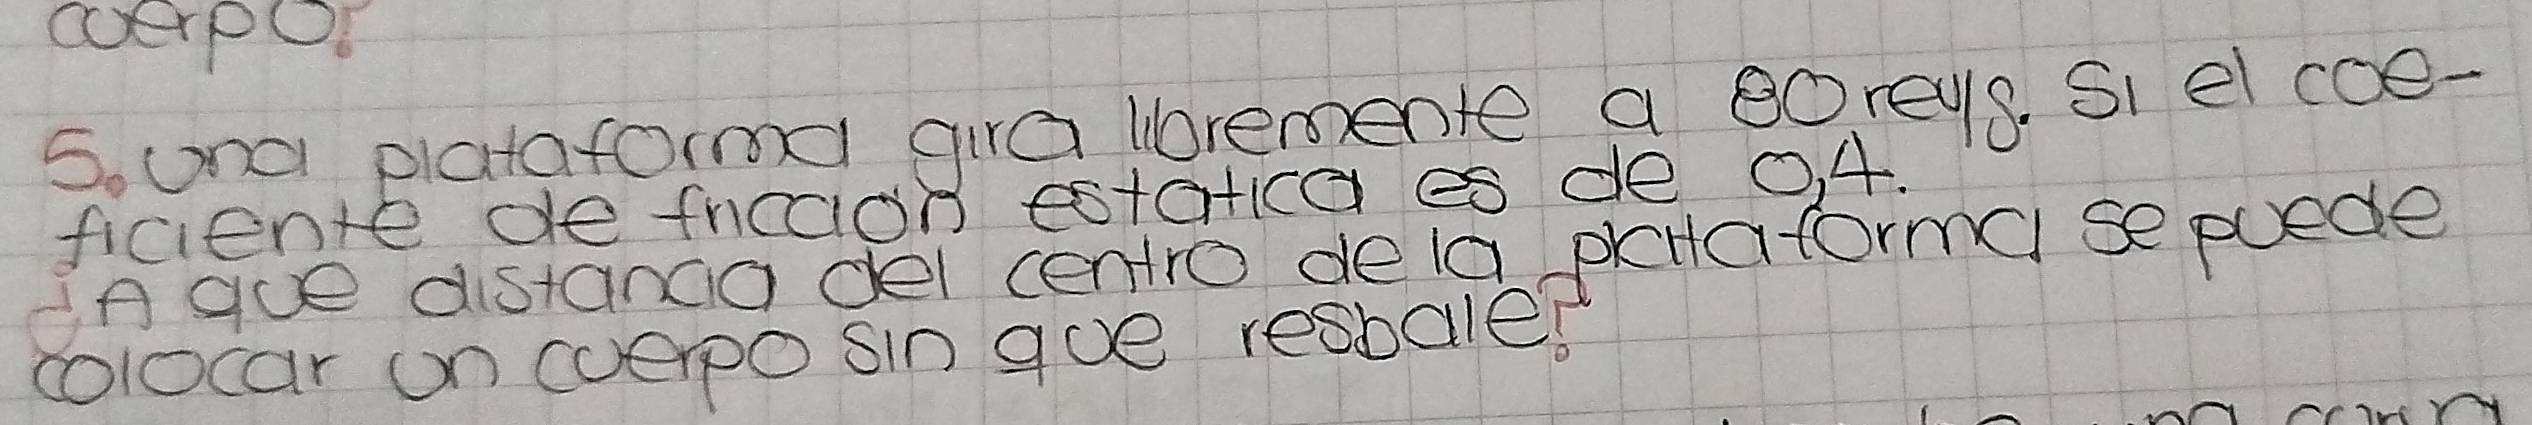 cuerpo?
5. una plataforma gira libremente a 80 rev/s. Si el coe-
ficiente de fricción estatica es de 0,4.
¿A que distancia del centro de la plataforma se puede
colocar un cuerpo sin que resbale?